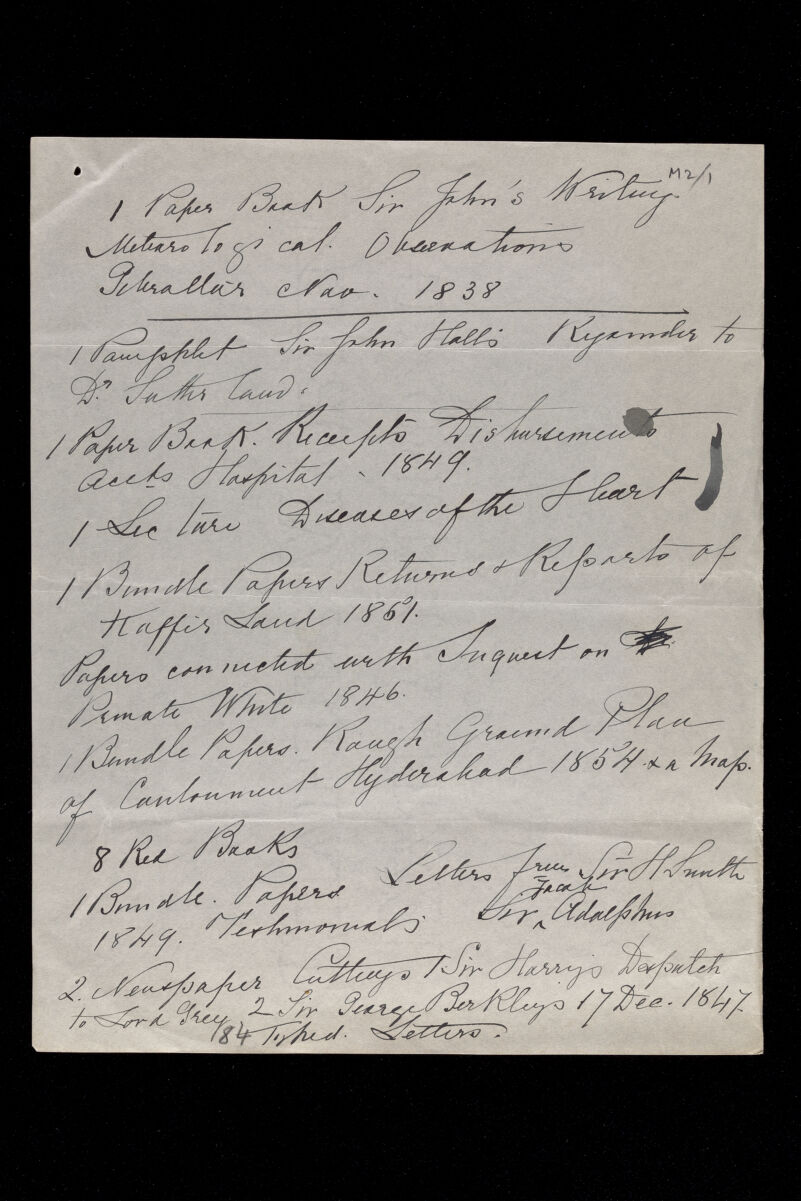 M2/1
1 Paper Book Sir John's Writing
Meteorological. Observations
Gibraltar Nov. 1838
1 Pamphlet Sir John Hall's Rejoinder to
Dr. Sutherland.
1 Paper Book. Receipts Disbursements
accts Hospital. 1849.
1 Lecture Diseases of the Heart
1 Bundle Papers Returns & Reports of
Kaffir Land 1851.
Papers connected with Inquest on
Private White 1846.
1 Bundle Papers. Rough Ground Plan
of Cantonment Hyderabad 1854. & a Map.
8 Red Books
1 Bundle. Papers Letters from Sir H Smith
1849. Testimonials Sir Jacob Adolphus
2. Newspaper Cuttings 1 Sir Harry's Despatch
to Lord Grey 2 Sir George Berkley's 17 Dec. 1847.
184 Typed. Letters.